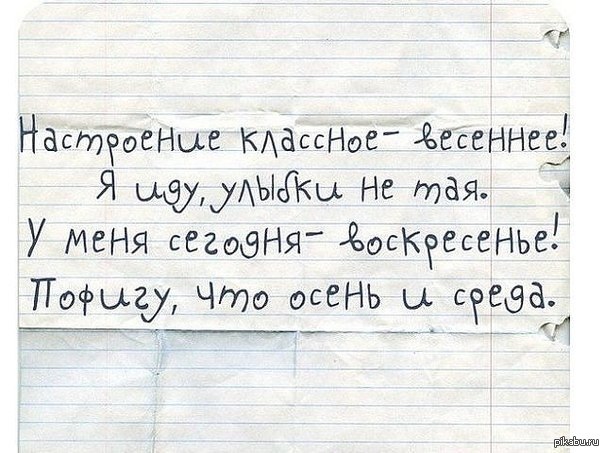 Настроение классное- весеннее!
Я иду, улыбки не тая.
У меня сегодня- воскресенье!
Пофигу, что осень и среда.
pikabu.ru